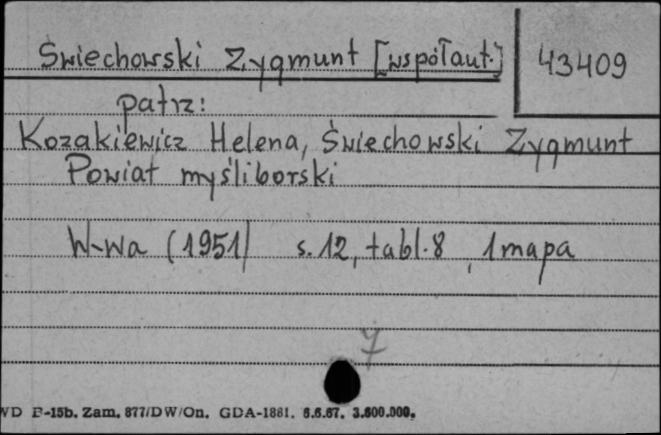 Świechowski Zygmunt [współaut.]
43409
patrz:
Kozakiewicz Helena, Świechowski Zygmunt
Powiat myśliborski
W-wa (1951) s. 12, tabl. 8, 1 mapa
7
WD P-15b. Zam. 877/DW/On. GDA-1881. 6.6.67. 3.600.000.